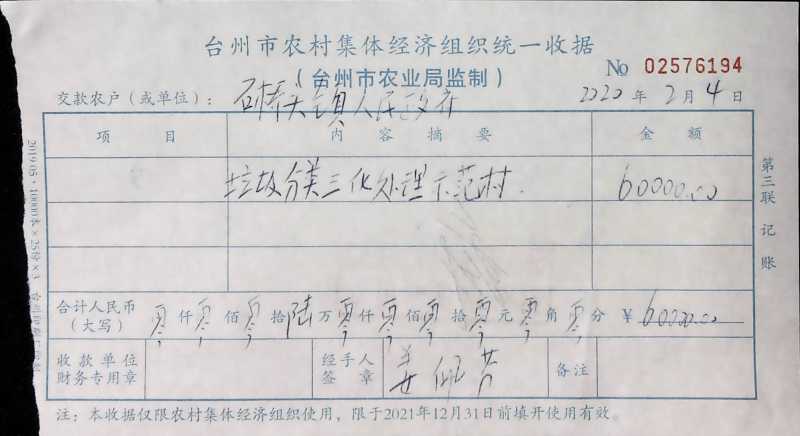 台州市农村集体经济组织统一收据
(台州市农业局监制)
No 02576194
交款农户(或单位): 石桥头镇人民政府 2020年2月4日
项 目 内容摘要 金额
垃圾分类三化处理示范村. 60000.00
合计人民币(大写) 零仟零佰零拾陆万零仟零佰零拾零元零角零分 ¥60000.00
收款单位财务专用章 经手人签章 备注
注:本收据仅限农村集体经济组织使用,限于2021年12月31日前填开使用有效。
第三联 记账